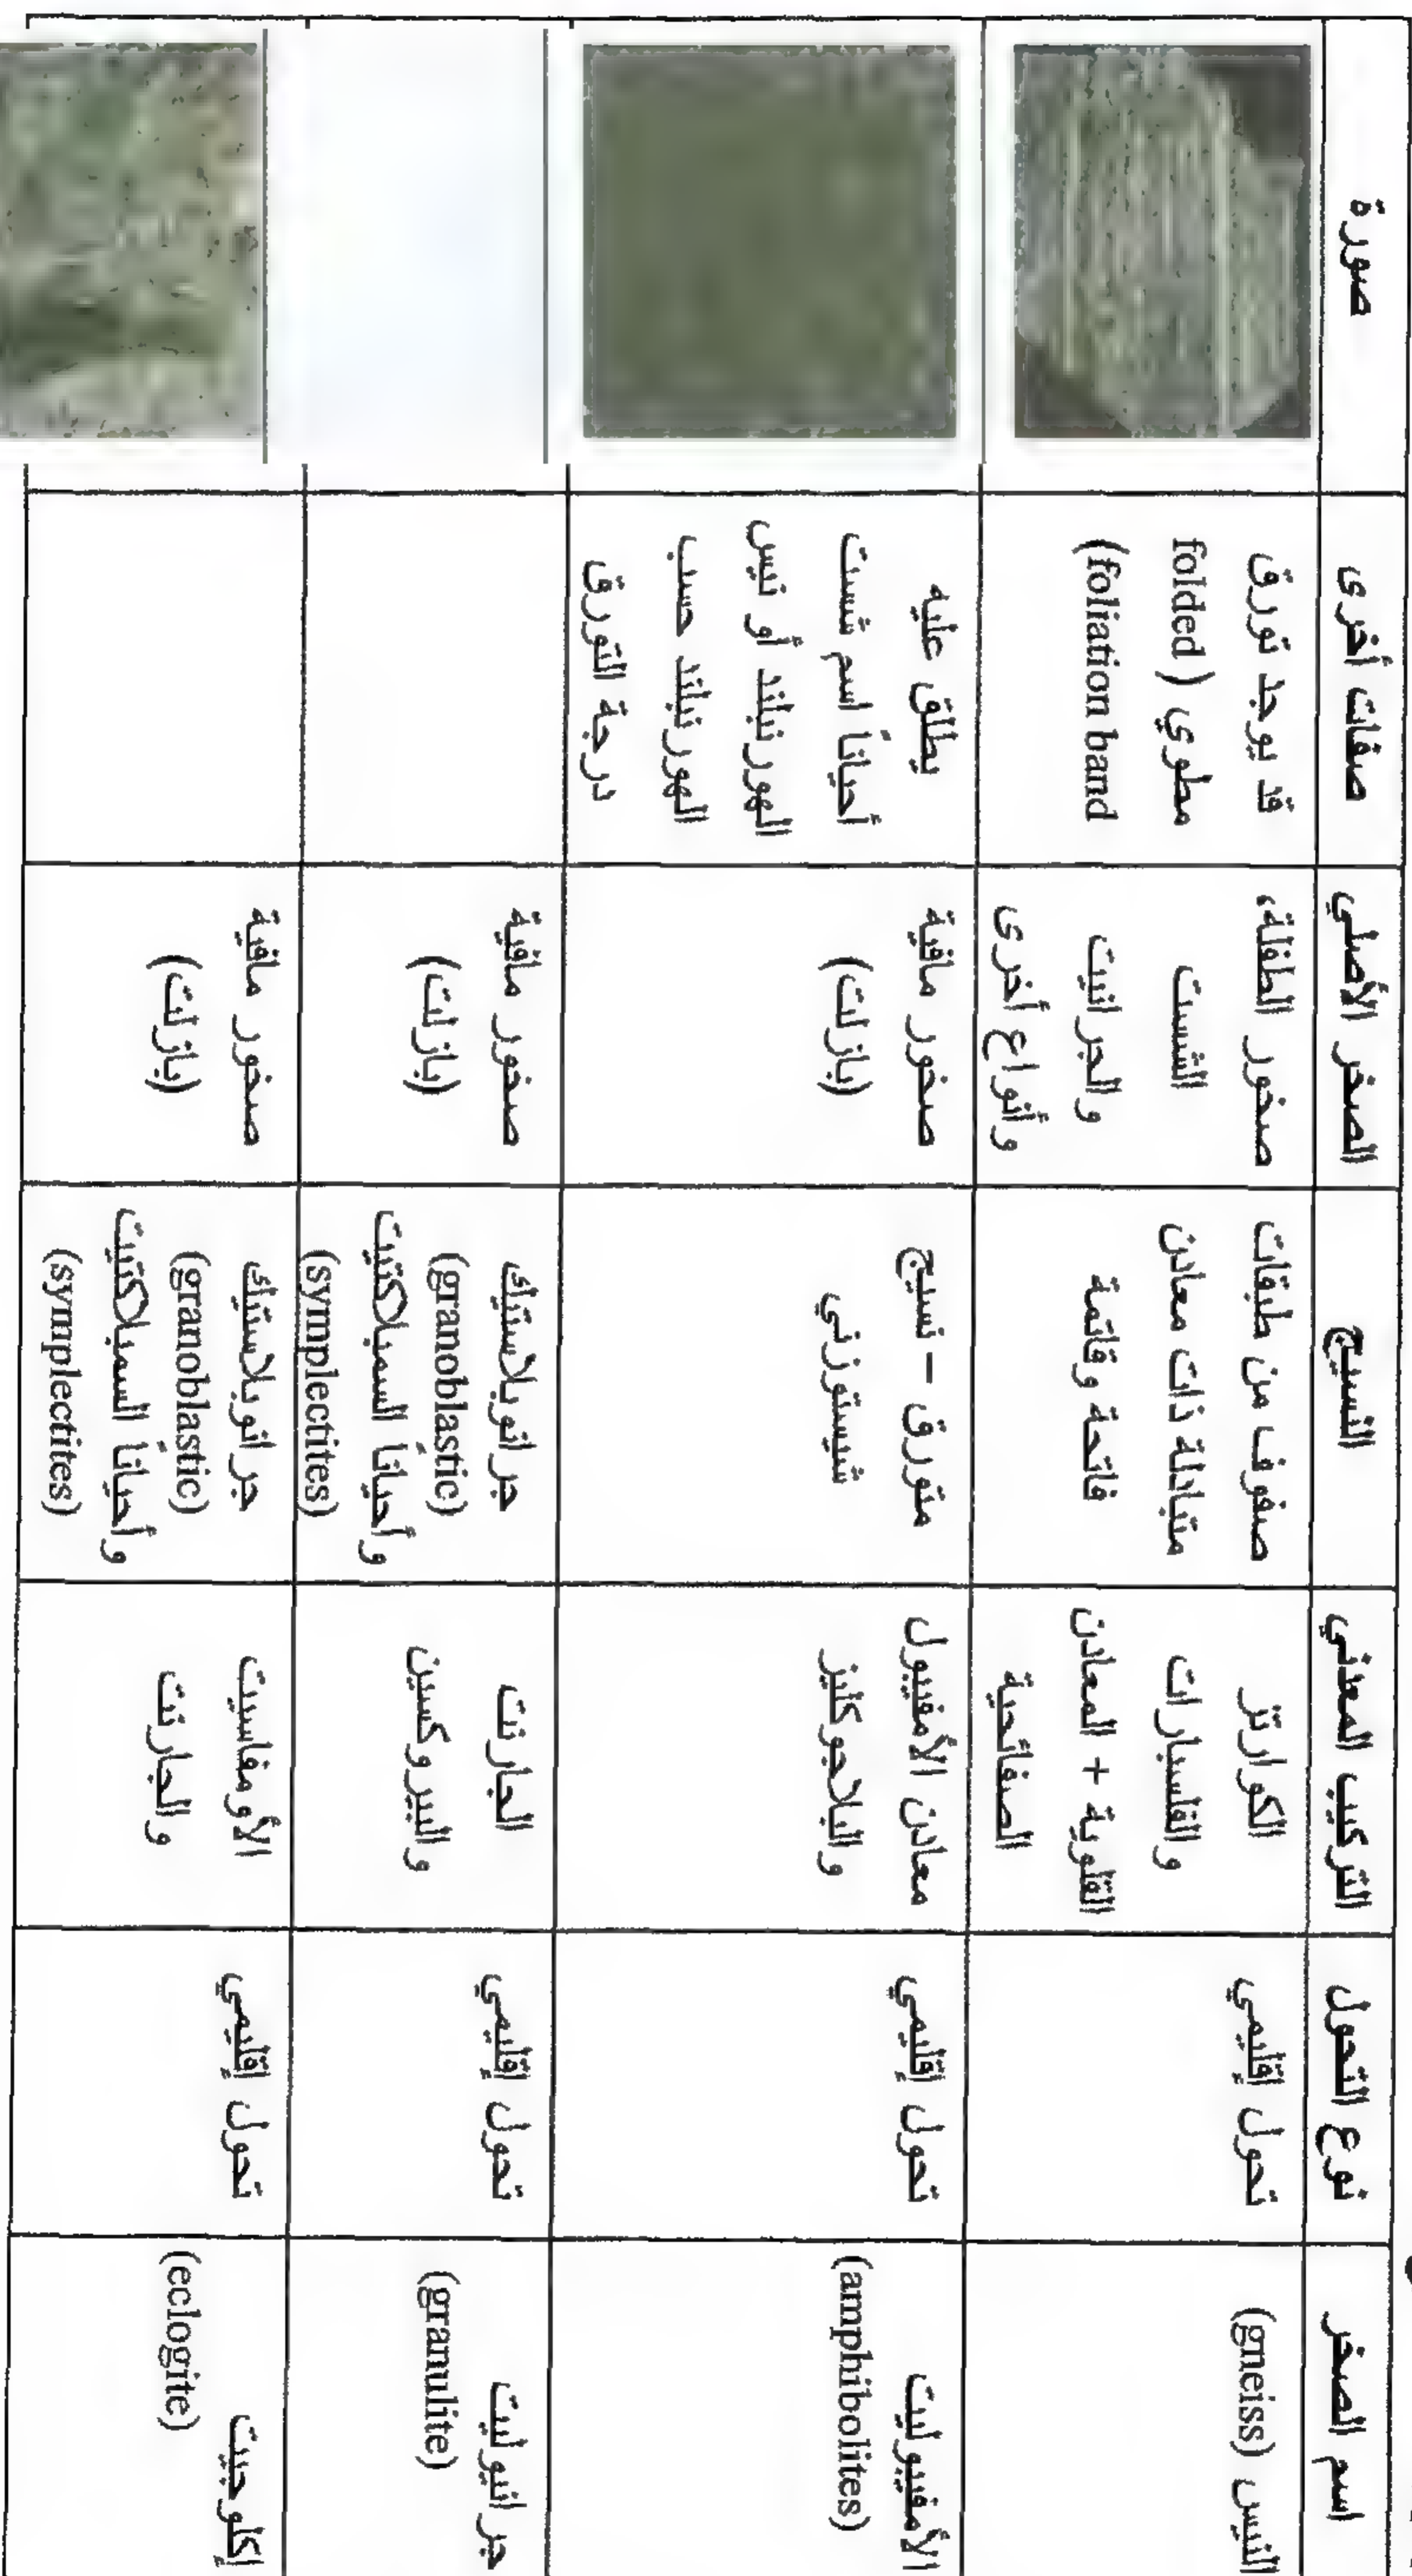 اسم الصخر
نوع التحول
التركيب المعدني
النسيج
الصخر الأصلي
صفات أخرى
صورة
النيس (gneiss)
تحول إقليمي
الكوارتز
والفلسبارات
القلوية + المعادن
الصفائحية
صفوف من طبقات
متبادلة ذات معادن
فاتحة وقاتمة
صخور الطفلة،
الشست
والجرانيت
وأنواع أخرى
قد يوجد تورق
مطوي (folded
(foliation band
الأمفيبوليت
(amphibolites)
تحول إقليمي
معادن الأمفيبول
والبلاجوكليز
متورق – نسيج
شيستوزني
صخور مافية
(بازلت)
يطلق عليه
أحياناً اسم شست
الهورنبلند أو نيس
الهورنبلند حسب
درجة التورق
جرانيوليت
(granulite)
تحول إقليمي
الجارنت
والبيروكسين
جرانوبلاستيك
(granoblastic)
وأحياناً السمبلاكتيت
(symplectites)
صخور مافية
(بازلت)
إكلوجيت
(eclogite)
تحول إقليمي
الأومفاسيت
والجارنت
جرانوبلاستيك
(granoblastic)
وأحياناً السمبلاكتيت
(symplectites)
صخور مافية
(بازلت)